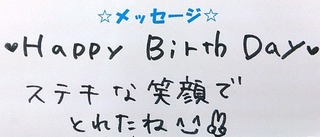 ☆メッセージ☆
♥Happy Birth Day♥
ステキな笑顔で
とれたね